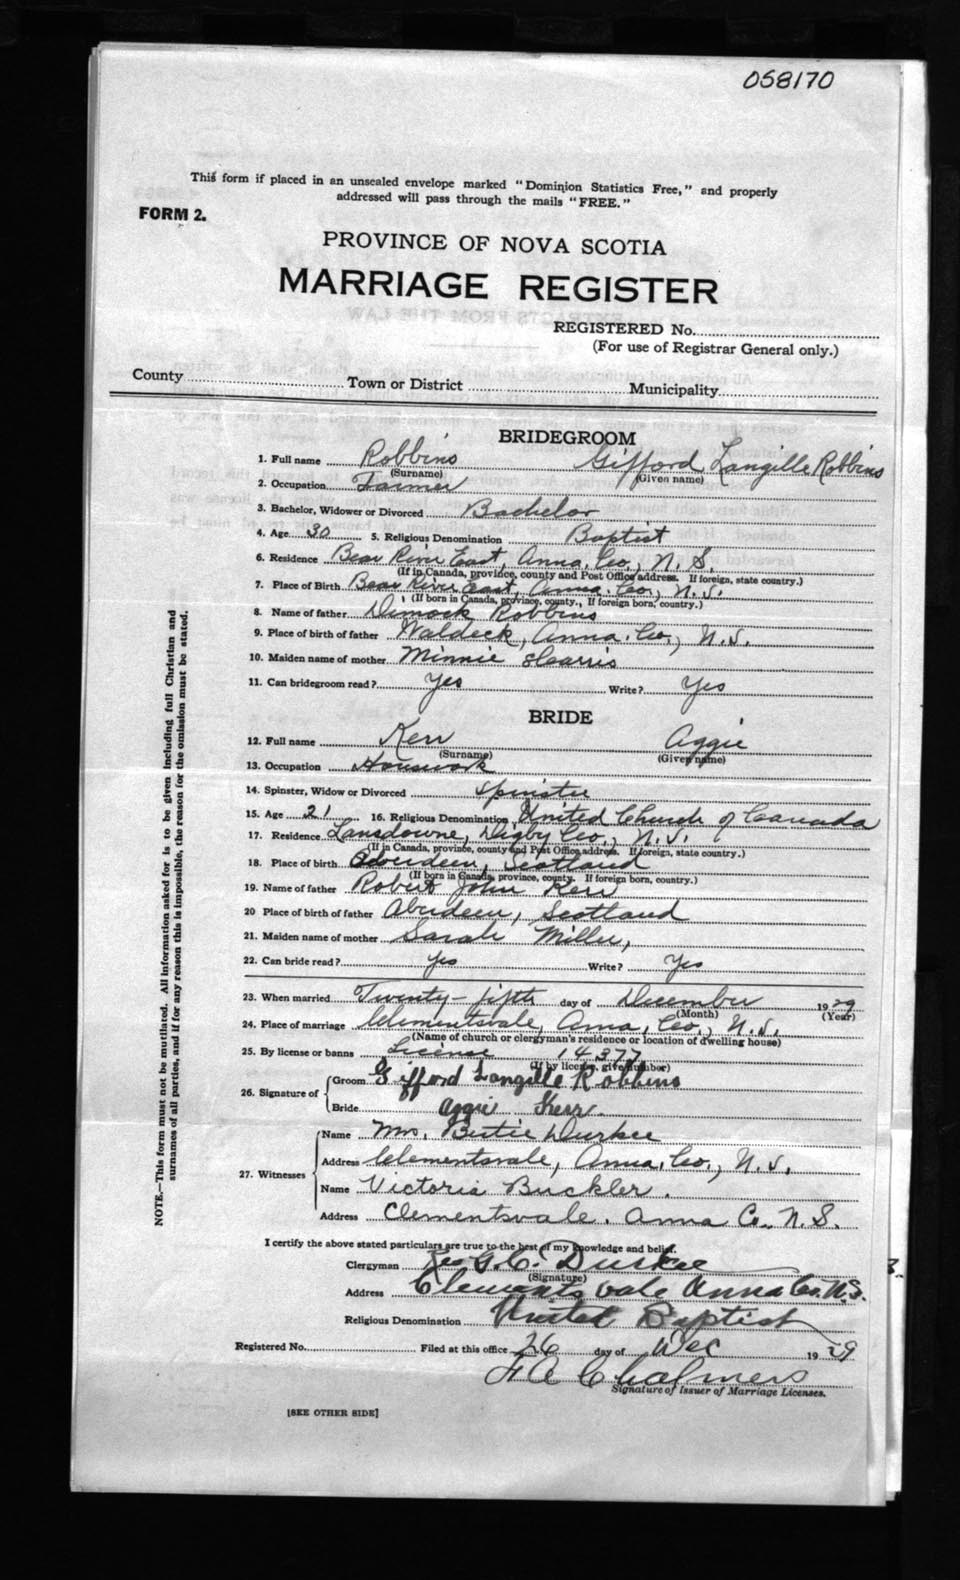 058170
This form if placed in an unsealed envelope marked "Dominion Statistics Free," and properly
addressed will pass through the mails "FREE."
FORM 2.
PROVINCE OF NOVA SCOTIA
MARRIAGE REGISTER
REGISTERED No.
(For use of Registrar General only.)
County Town or District Municipality
BRIDEGROOM
1. Full name Robbins Gifford Langille Robbins
(Surname) (Given name)
2. Occupation Farmer
3. Bachelor, Widower or Divorced Bachelor
4. Age 30 5. Religious Denomination Baptist
6. Residence Bear River East, Anna. Co., N. S.
(If in Canada, province, county and Post Office address. If foreign, state country.)
7. Place of Birth Bear River East, Anna. Co., N. S.
(If born in Canada, province, county., If foreign born, country.)
8. Name of father Dimock Robbins
9. Place of birth of father Waldeck, Anna. Co., N. S.
10. Maiden name of mother Minnie Harris
11. Can bridegroom read? Yes Write? Yes
BRIDE
12. Full name Kerr Aggie
(Surname) (Given name)
13. Occupation Housework
14. Spinster, Widow or Divorced Spinster
15. Age 21 16. Religious Denomination United Church of Canada
17. Residence Lansdowne, Digby Co., N. S.
(If in Canada, province, county and Post Office address. If foreign, state country.)
18. Place of birth Aberdeen, Scotland
(If born in Canada, province, county. If foreign born, country.)
19. Name of father Robert John Kerr
20 Place of birth of father Aberdeen, Scotland
21. Maiden name of mother Sarah Miller,
22. Can bride read? Yes Write? Yes
23. When married Twenty-fifth day of December 1929
(Month) (Year)
24. Place of marriage Clementsvale, Anna, Co., N. S.
(Name of church or clergyman's residence or location of dwelling house)
25. By license or banns License 14377
(If by license, give number)
26. Signature of Groom Gifford Langille Robbins
Bride Aggie Kerr.
27. Witnesses Name Mrs. Durkee
Address Clementsvale, Anna. Co., N. S.
Name Victoria Buckler.
Address Clementsvale. Anna Co. N. S.
I certify the above stated particulars are true to the best of my knowledge and belief.
Clergyman G. C. Durkee
(Signature)
Address Clements vale Anna Co. N. S.
Religious Denomination United Baptist
Registered No. Filed at this office 26 day of Dec 1929
F A Chalmers
Signature of Issuer of Marriage Licenses.
[SEE OTHER SIDE]
NOTE.—This form must not be mutilated. All information asked for is to be given including full Christian and
surnames of all parties, and if for any reason this is impossible, the reason for the omission must be stated.